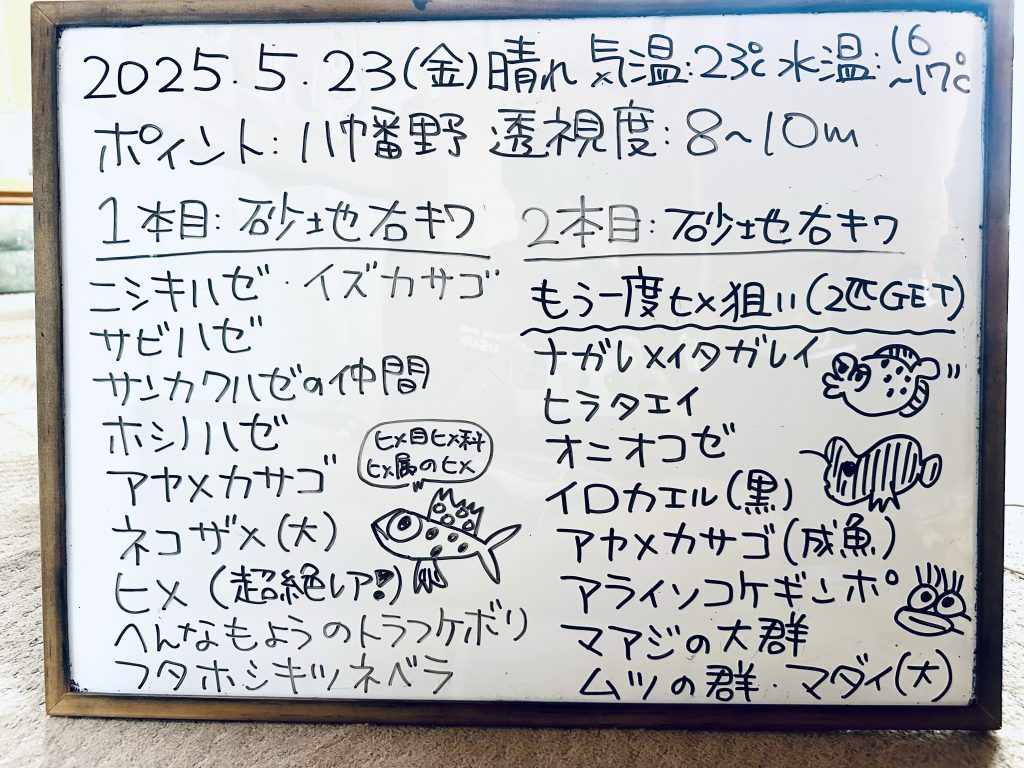 2025.5.23(金)晴れ 気温:23℃ 水温:16~17℃
ポイント:八幡野 透視度:8~10m
1本目:砂地右キワ
ニシキハゼ・イズカサゴ
サビハゼ
サンカクハゼの仲間
ホシノハゼ
アヤメカサゴ
ネコザメ(大)
ヒメ(超絶レア!?)
へんなもようのトラフケボリ
フタホシキツネベラ
ヒメ目ヒメ科
ヒメ属のヒメ
2本目:砂地右キワ
もう一度ヒメ狙い(2匹GET)
ナガレメイタガレイ
ヒラタエイ
オニオコゼ
イロカエル(黒)
アヤメカサゴ(成魚)
アライソコケギンポ
マアジの大群
ムツの群・マダイ(大)